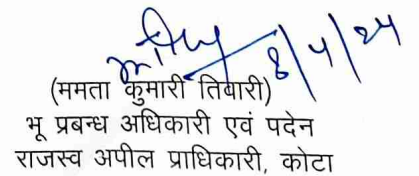 8/4/24
(ममता कुमारी तिवारी)
भू प्रबन्ध अधिकारी एवं पदेन
राजस्व अपील प्राधिकारी, कोटा